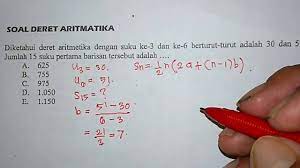 SOAL DERET ARITMATIKA
Diketahui deret aritmetika dengan suku ke-3 dan ke-6 berturut-turut adalah 30 dan 5
Jumlah 15 suku pertama barisan tersebut adalah ....
A. 625
B. 755
C. 975
D. 1.050
E. 1.150
U₃ = 30.
U₆ = 51.
S₁₅ = ?
b = 51 - 30 / 6 - 3
= 21 / 3 = 7.
Sn = 1/2 n (2a + (n-1) b)